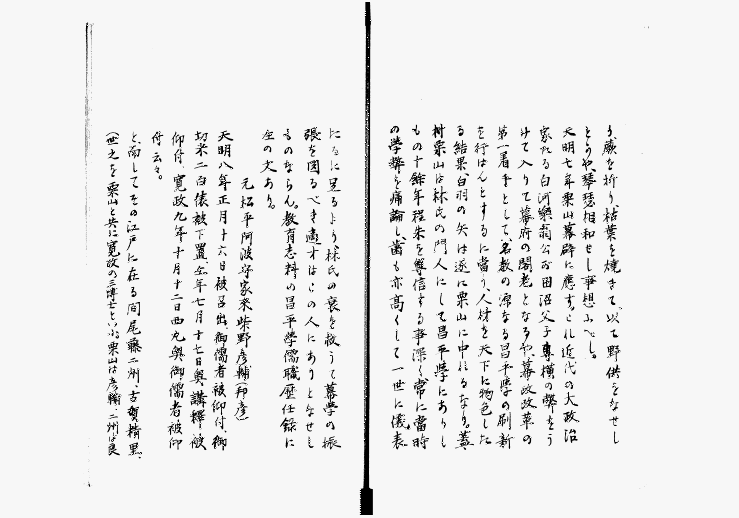 う蕨を折り、枯葉を焼きて、以て野供をなせし
とうや。琴瑟相和せし事想ふべし。
天明七年栗山幕辟に應ず。これ近代の大政治
家たる白河樂翁公が田沼父子專横の弊をう
けて入りて幕府の閣老となるや、幕政改革の
第一着手として、名教の源なる昌平學の刷新
を行はんとするに當り、人材を天下に物色した
る結果、白羽の矢は遂に栗山に中れるなり。蓋
し栗山は林氏の門人にして昌平學にありし
もの十餘年程朱を尊信する事深く常に當時
の學弊を痛論し、齒も亦高くして一世に儀表
たるに足るより、林氏の衰を救うて幕學の振
張を圖るべき適才はこの人にありとなせし
ものならん。教育志料の昌平學儒職歴任録に
左の文あり。
元松平阿波守家來柴野彦輔(邦彦)
天明八年正月十六日被召出、御儒者被仰付、御
切米二百俵被下置、仝年七月十七日奥講釋被
仰付、寛政九年十月十二日西丸奥御儒者被仰
付云々。
と、而してその江戸に在る間尾藤二州、古賀精里、
(世之を栗山と共に寛政の三博士といふ。栗山は彦輔、二州は良